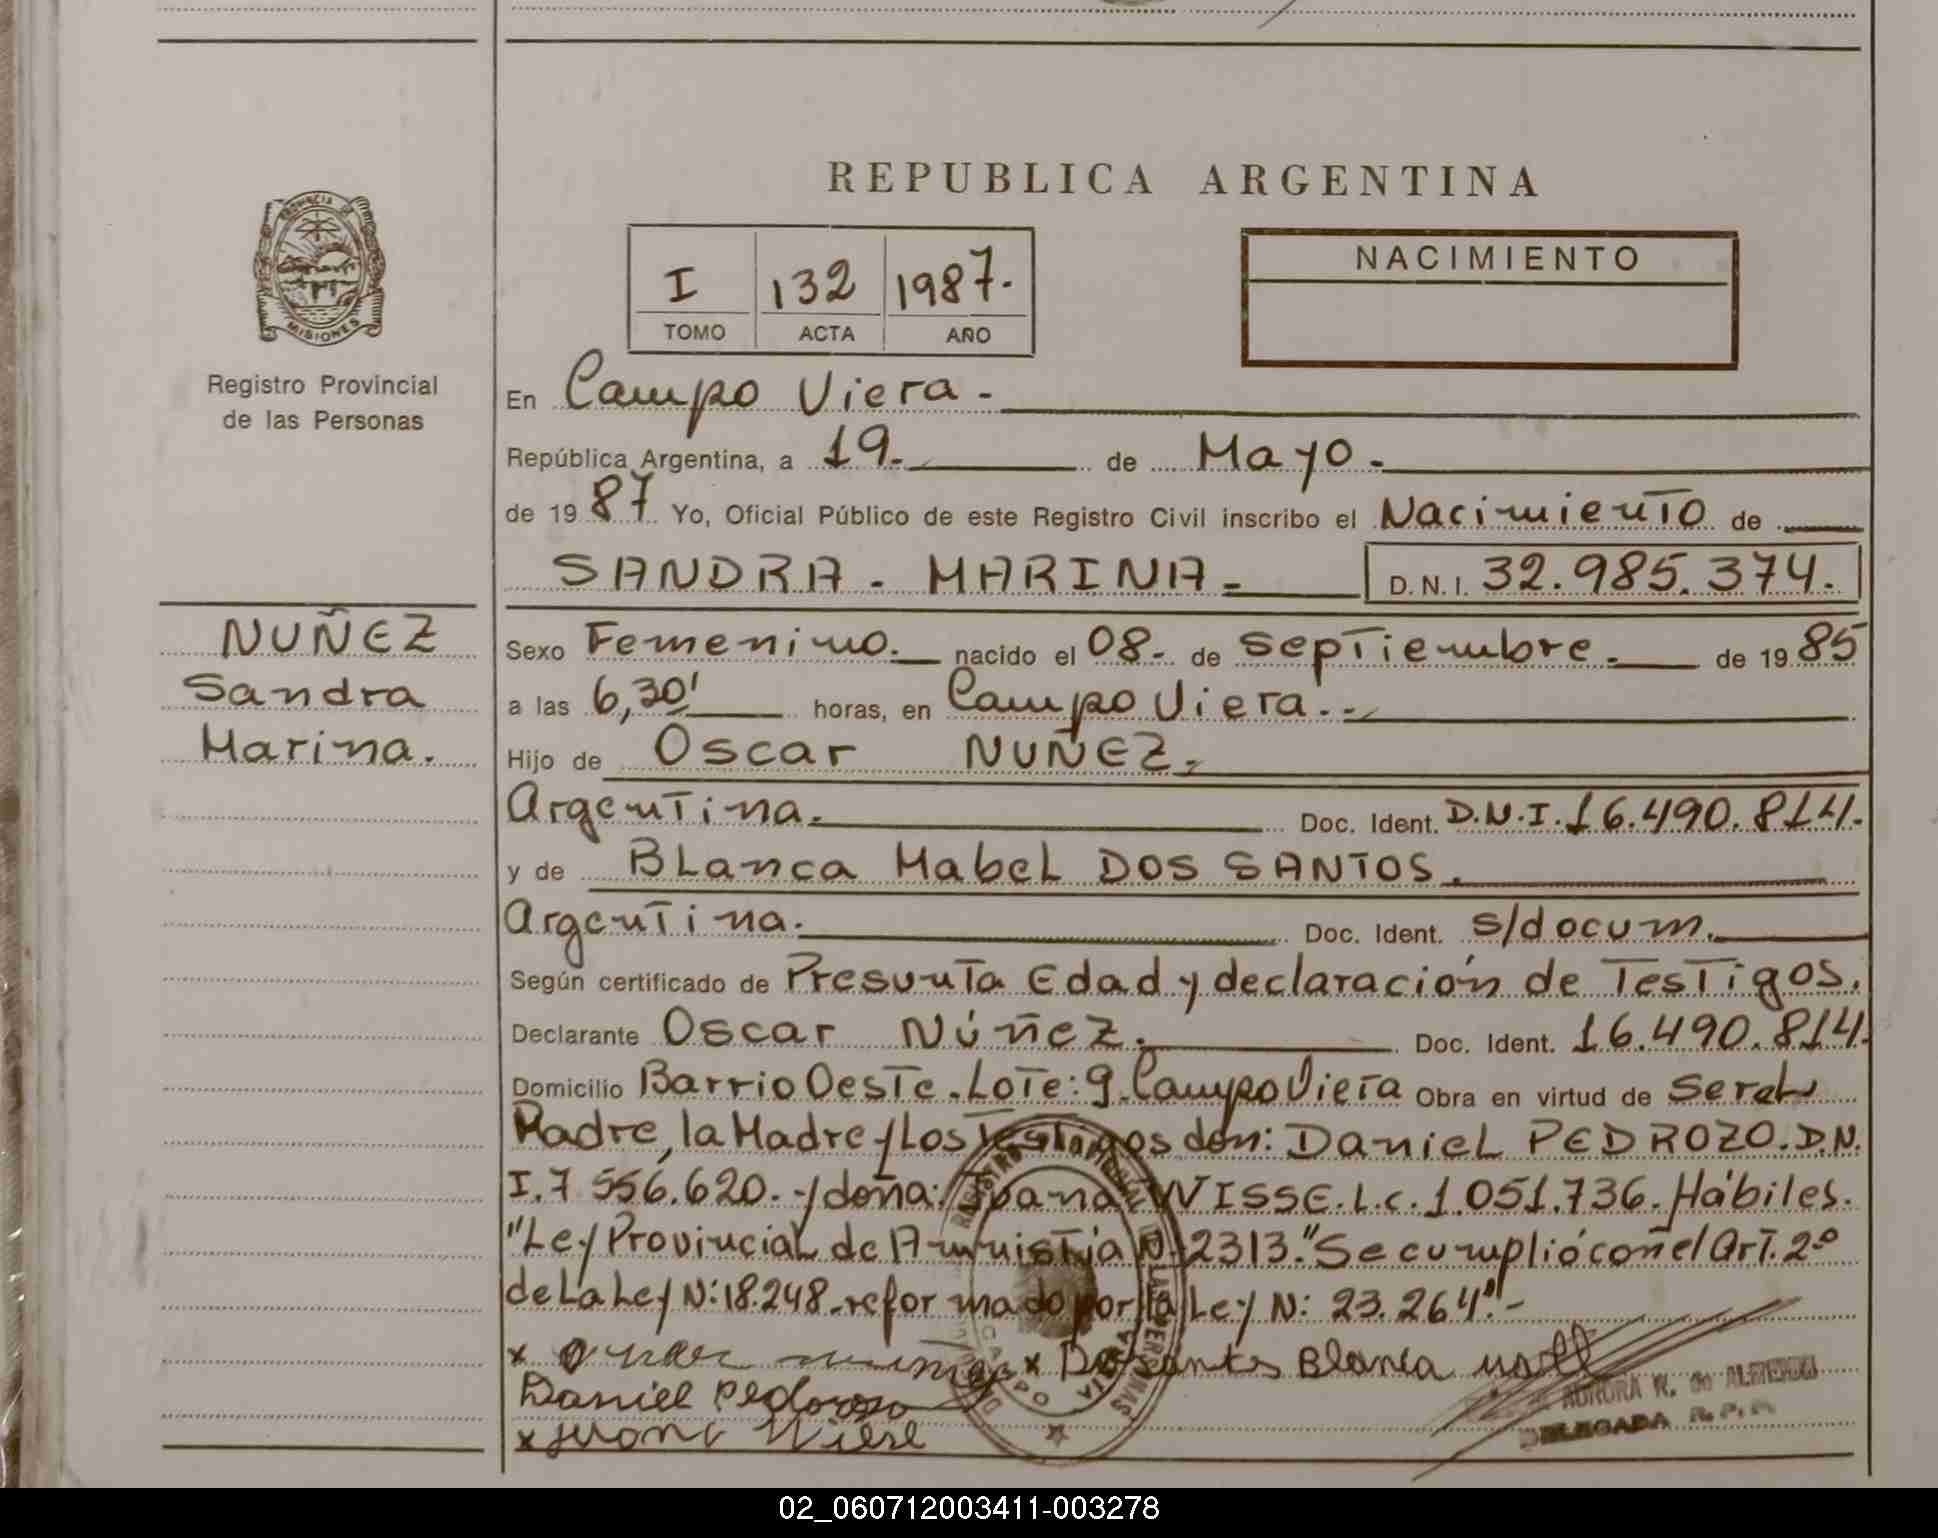 REPUBLICA ARGENTINA
PROVINCIA DE
MISIONES
Registro Provincial
de las Personas
I 132 1987.
TOMO ACTA AÑO
NACIMIENTO
En Campo Viera.
República Argentina, a 19. de Mayo.
de 1987 Yo, Oficial Público de este Registro Civil inscribo el Nacimiento de
SANDRA. MARINA. D.N.I. 32.985.374.
NUÑEZ
Sandra
Marina.
Sexo Femenino. nacido el 08. de septiembre. de 1985
a las 6,30' horas, en Campo Viera.
Hijo de Oscar NUÑEZ.
Argentina. Doc. Ident. D.N.I. 16.490.814.
y de Blanca Mabel DOS SANTOS.
Argentina. Doc. Ident. s/docum.
Según certificado de Presunta Edad y declaración de Testigos.
Declarante Oscar Núñez. Doc. Ident. 16.490.814.
Domicilio Barrio Oeste. Lote: 9. Campo Viera Obra en virtud de Ser el
Padre, la Madre y Los Testigos don: Daniel PEDROZO. D.N.
I. 7 556.620. y doña: Juana WISSE. L.c. 1.051.736. Hábiles.
"Ley Provincial de Amnistía N: 2313." Se cumplió con el Art. 2º
de La Ley N: 18.248. reformado por la Ley N: 23.264".-
x x Dosantos Blanca
Daniel Pedrozo
x Juana
AURORA R. de ALMEIDA
DELEGADA R.P.P.
02_060712003411-003278